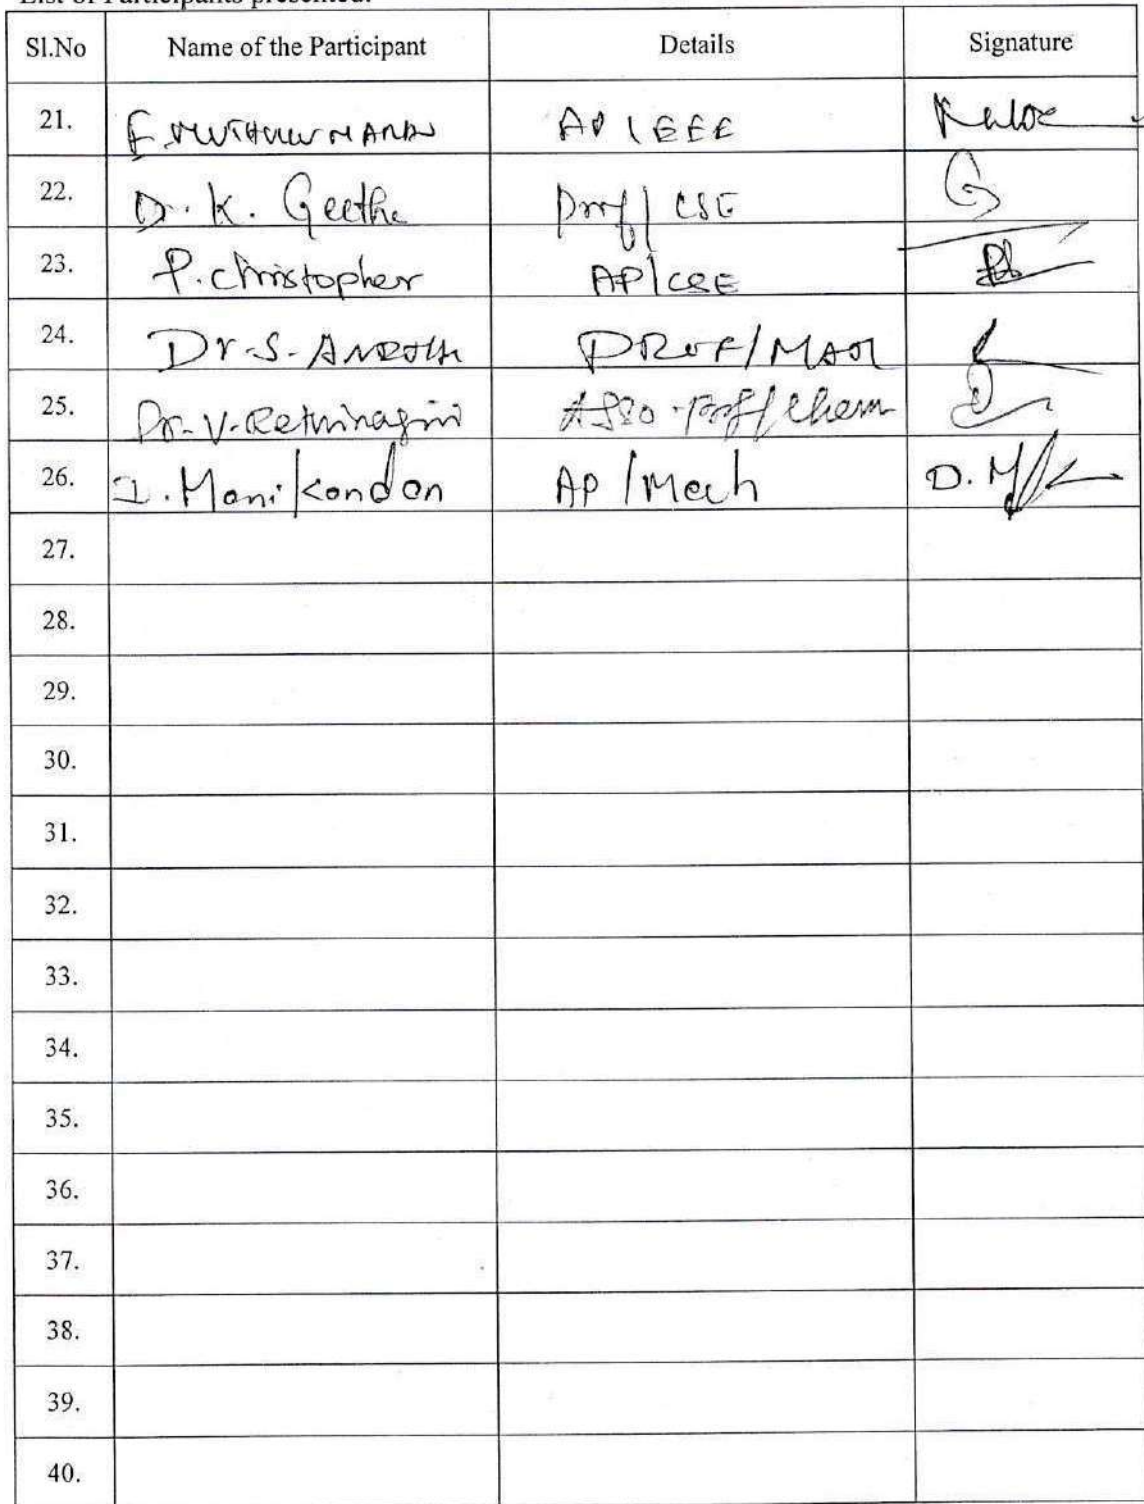 List of Participants presented.
Sl.No Name of the Participant Details Signature
21. E. MUTHUKUMARAN AP / EEE
22. D. K. Geetha Prof / CSE
23. P. Christopher AP / CSE
24. Dr. S. PROF /
25. Dr. V. Asso. Prof / Chem
26. Manikandan AP / Mech D. M
27.
28.
29.
30.
31.
32.
33.
34.
35.
36.
37.
38.
39.
40.